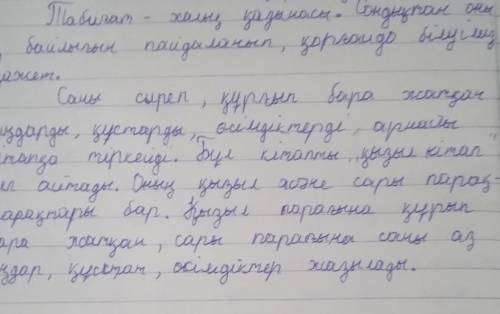 Табиғат - халық қазынасы. Сондықтан оны
, байлығын пайдаланып, қорғайдо білуіміз
ажет.
Саны сыреп, құрғып бара жатқан
ңдарды, құстарды, өсімдіктерді, арнайы
тапқа тіркейді. Бұл кітапты „қызыл кітап"
еп айтады. Оның қызыл және сары парақ-
арақтары бар. Қызыл парағына құрып
ара жатқан, сары парағына саны аз
ңдар, құстап, өсімдіктер жазылады.